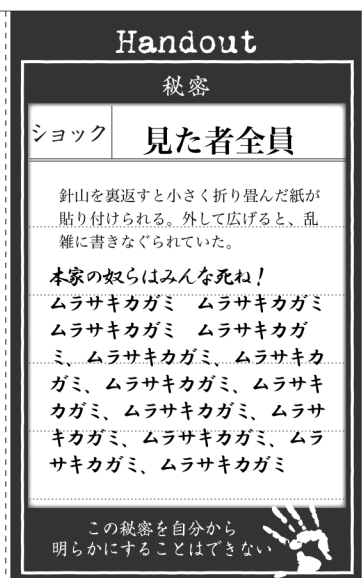 Handout
秘密
ショック
見た者全員
針山を裏返すと小さく折り畳んだ紙が
貼り付けられる。外して広げると、乱
雑に書きなぐられていた。
本家の奴らはみんな死ね!
ムラサキカガミ　ムラサキカガミ
ムラサキカガミ　ムラサキカガ
ミ、ムラサキカガミ、ムラサキカ
ガミ、ムラサキカガミ、ムラサキ
カガミ、ムラサキカガミ、ムラサ
キカガミ、ムラサキカガミ、ムラ
サキカガミ、ムラサキカガミ
この秘密を自分から
明らかにすることはできない